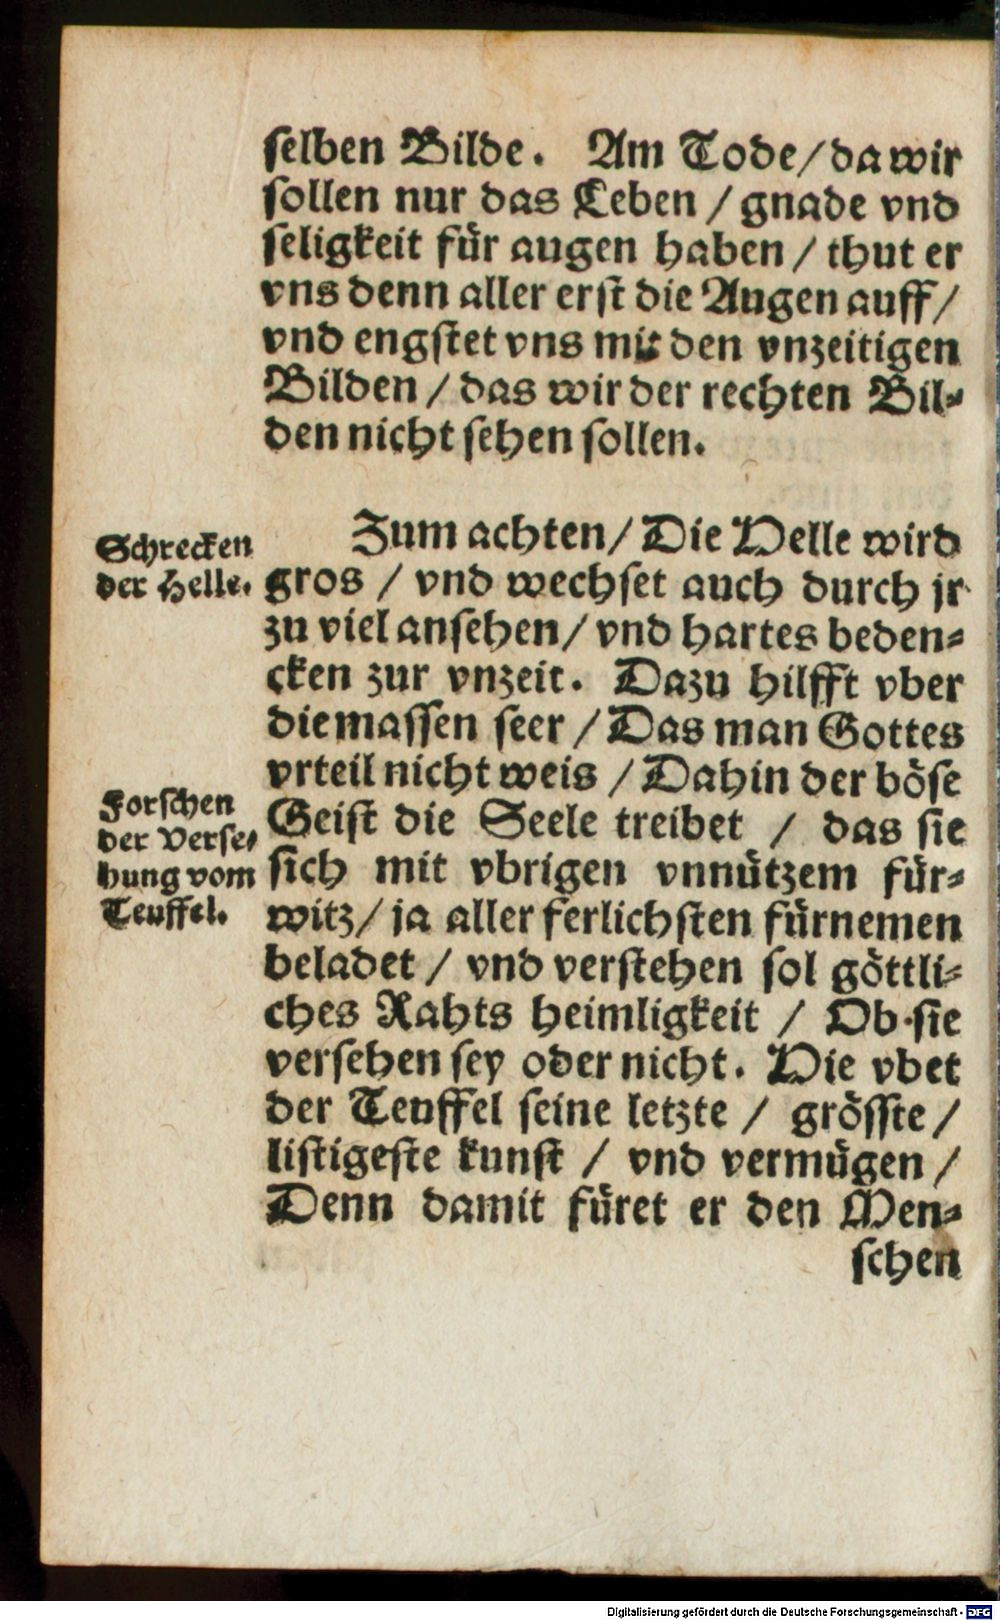 selben Bilde. Am Tode/da wir
sollen nur das Leben / gnade vnd
seligkeit für augen haben / thut er
vns denn aller erst die Augen auff/
vnd engstet vns mit den vnzeitigen
Bilden / das wir der rechten Bil⸗
den nicht sehen sollen.
Schrecken
der Helle.
Zum achten/ Die Helle wird
gros / vnd wechset auch durch jr
zu viel ansehen/ vnd hartes beden⸗
cken zur vnzeit. Dazu hilfft vber
die massen seer / Das man Gottes
vrteil nicht weis / Dahin der böse
Forschen
der Verse⸗
hung vom
Teuffel.
Geist die Seele treibet / das sie
sich mit vbrigen vnnützem für⸗
witz/ ja aller ferlichsten fürnemen
beladet / vnd verstehen sol göttli⸗
ches Rahts heimligkeit / Ob sie
versehen sey oder nicht. Hie vbet
der Teuffel seine letzte / grösste /
listigeste kunst / vnd vermügen /
Denn damit füret er den Men⸗
schen
Digitalisierung gefördert durch die Deutsche Forschungsgemeinschaft - DFG